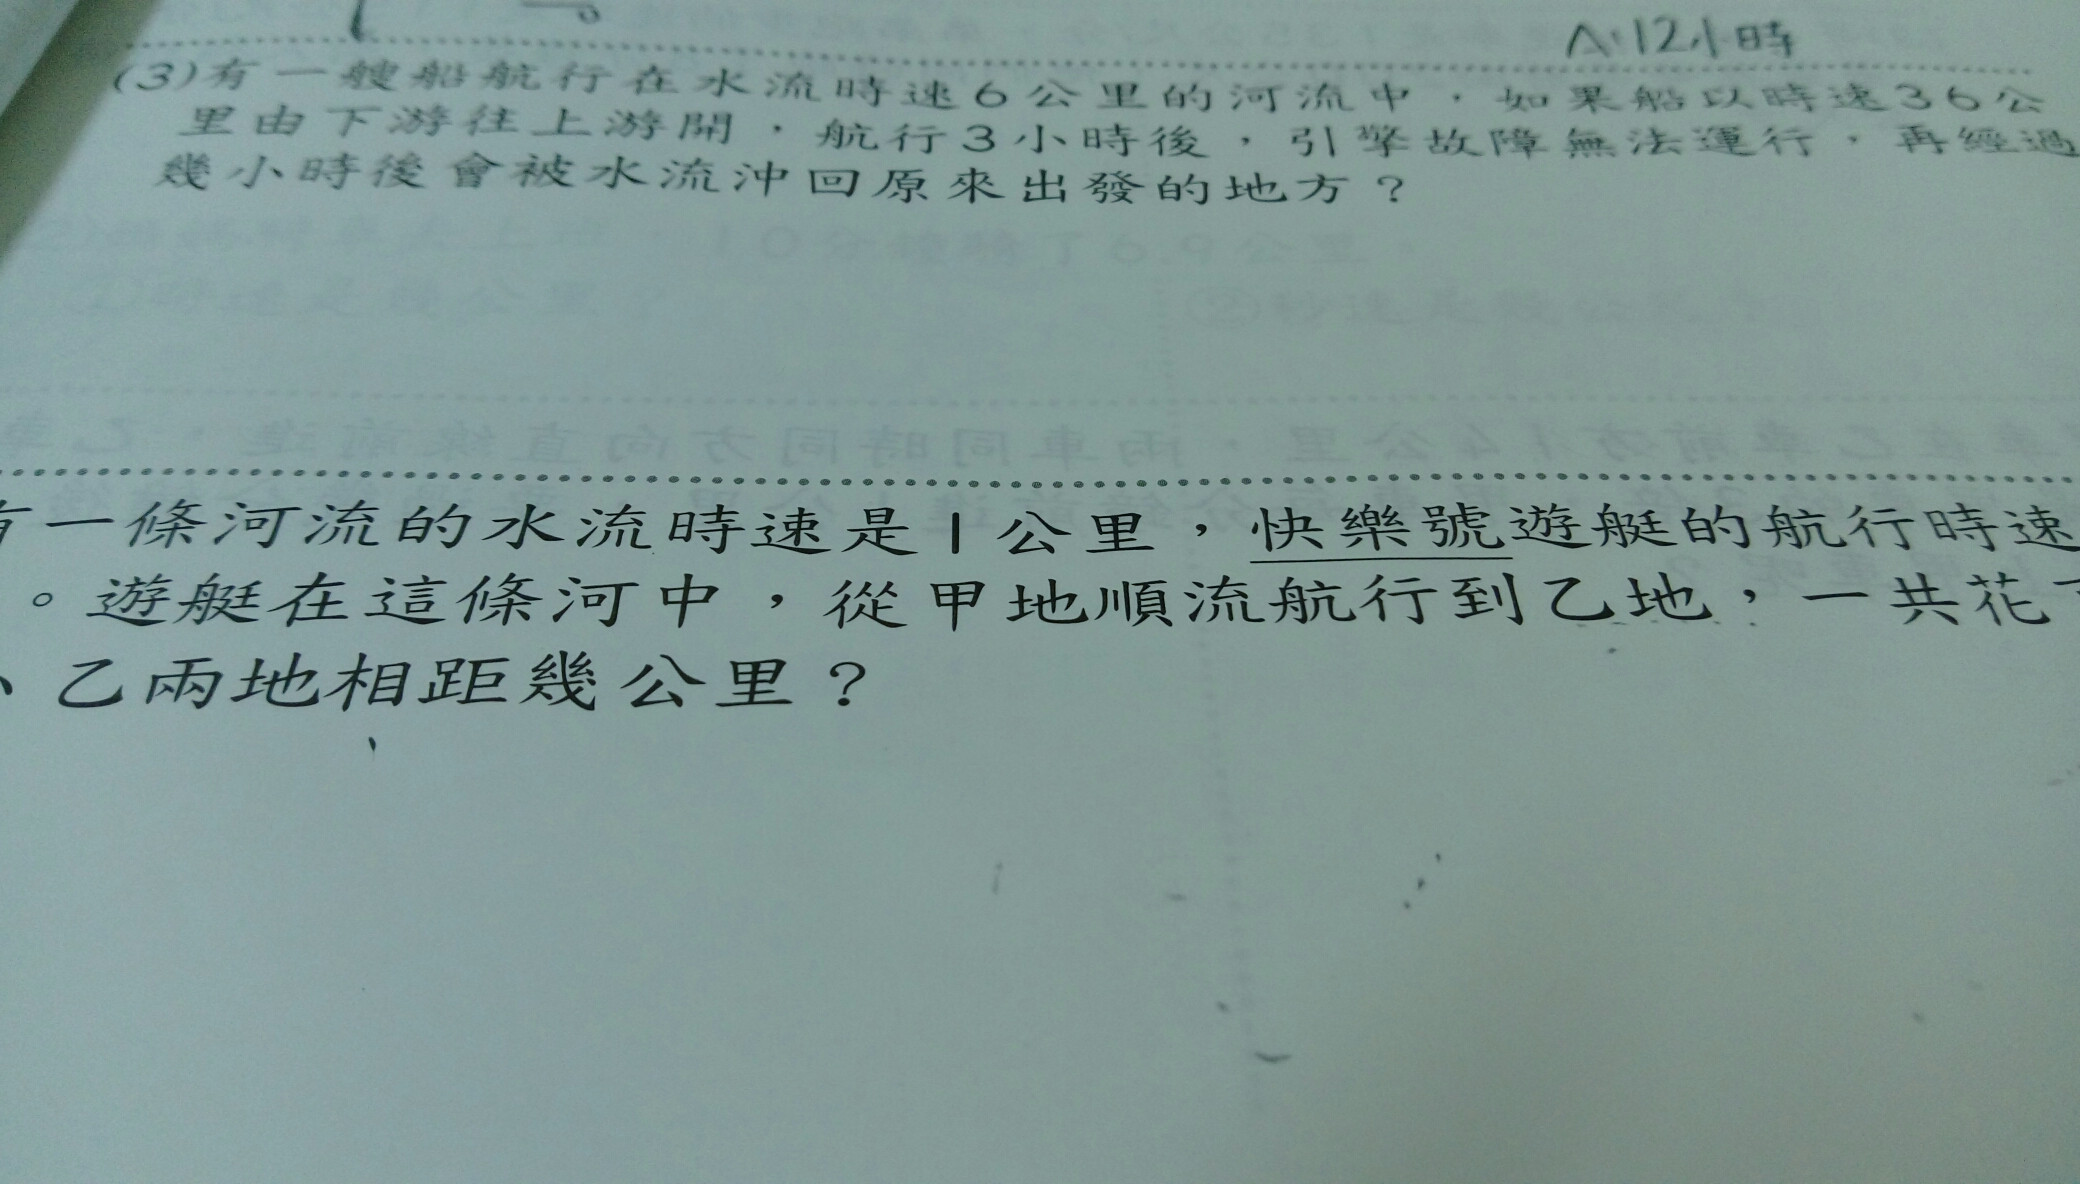 A:12小時
(3)有一艘船航行在水流時速6公里的河流中，如果船以時速36公
里由下游往上游開，航行3小時後，引擎故障無法運行，再經過
幾小時後會被水流沖回原來出發的地方？
有一條河流的水流時速是1公里，快樂號遊艇的航行時速
。遊艇在這條河中，從甲地順流航行到乙地，一共花了
、乙兩地相距幾公里？